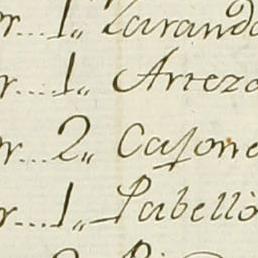 r....1,, Zarand
r....1,, Arteza
r....2,, Casone
r....1,, Pabellò